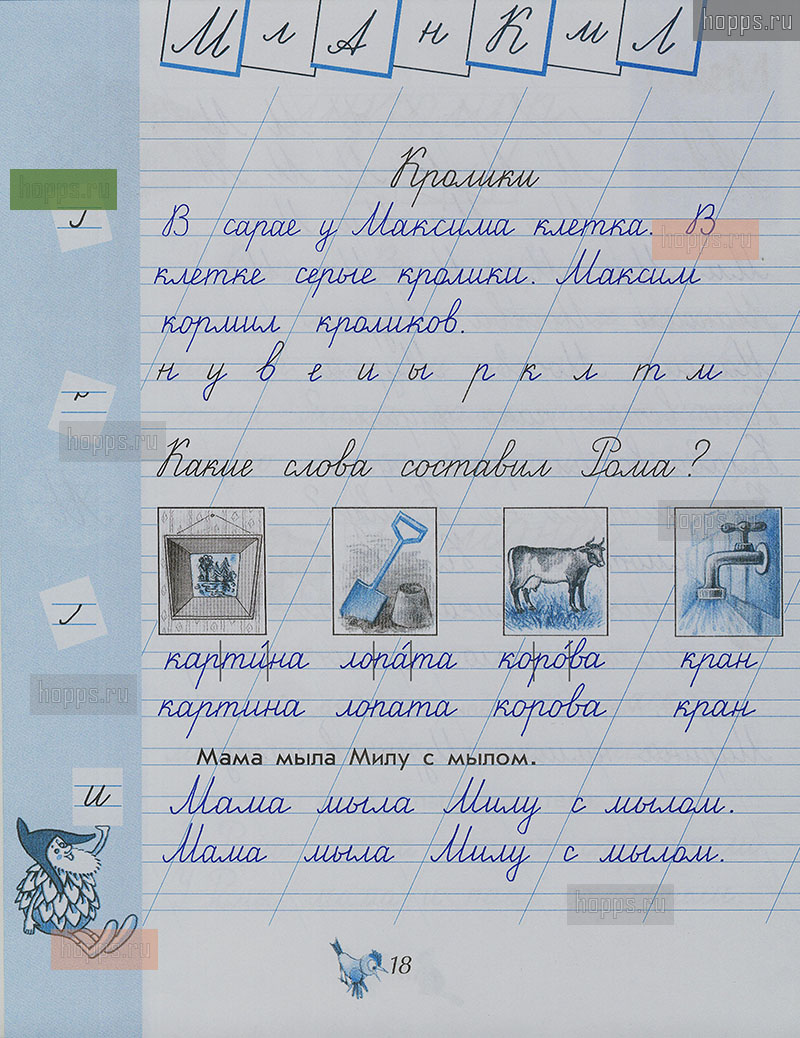 М л А н К м Л
hopps.ru
Кролики
hopps.ru
В сарае у Максима клетка. В
hopps.ru
клетке серые кролики. Максим
кормил кроликов.
н у в е и ы р к л т м
hopps.ru
Какие слова составил Рома?
hopps.ru
карти́на лопа́та коро́ва кран
hopps.ru
картина лопата корова кран
Мама мыла Милу с мылом.
и
Мама мыла Милу с мылом.
Мама мыла Милу с мылом.
hopps.ru
hopps.ru
18